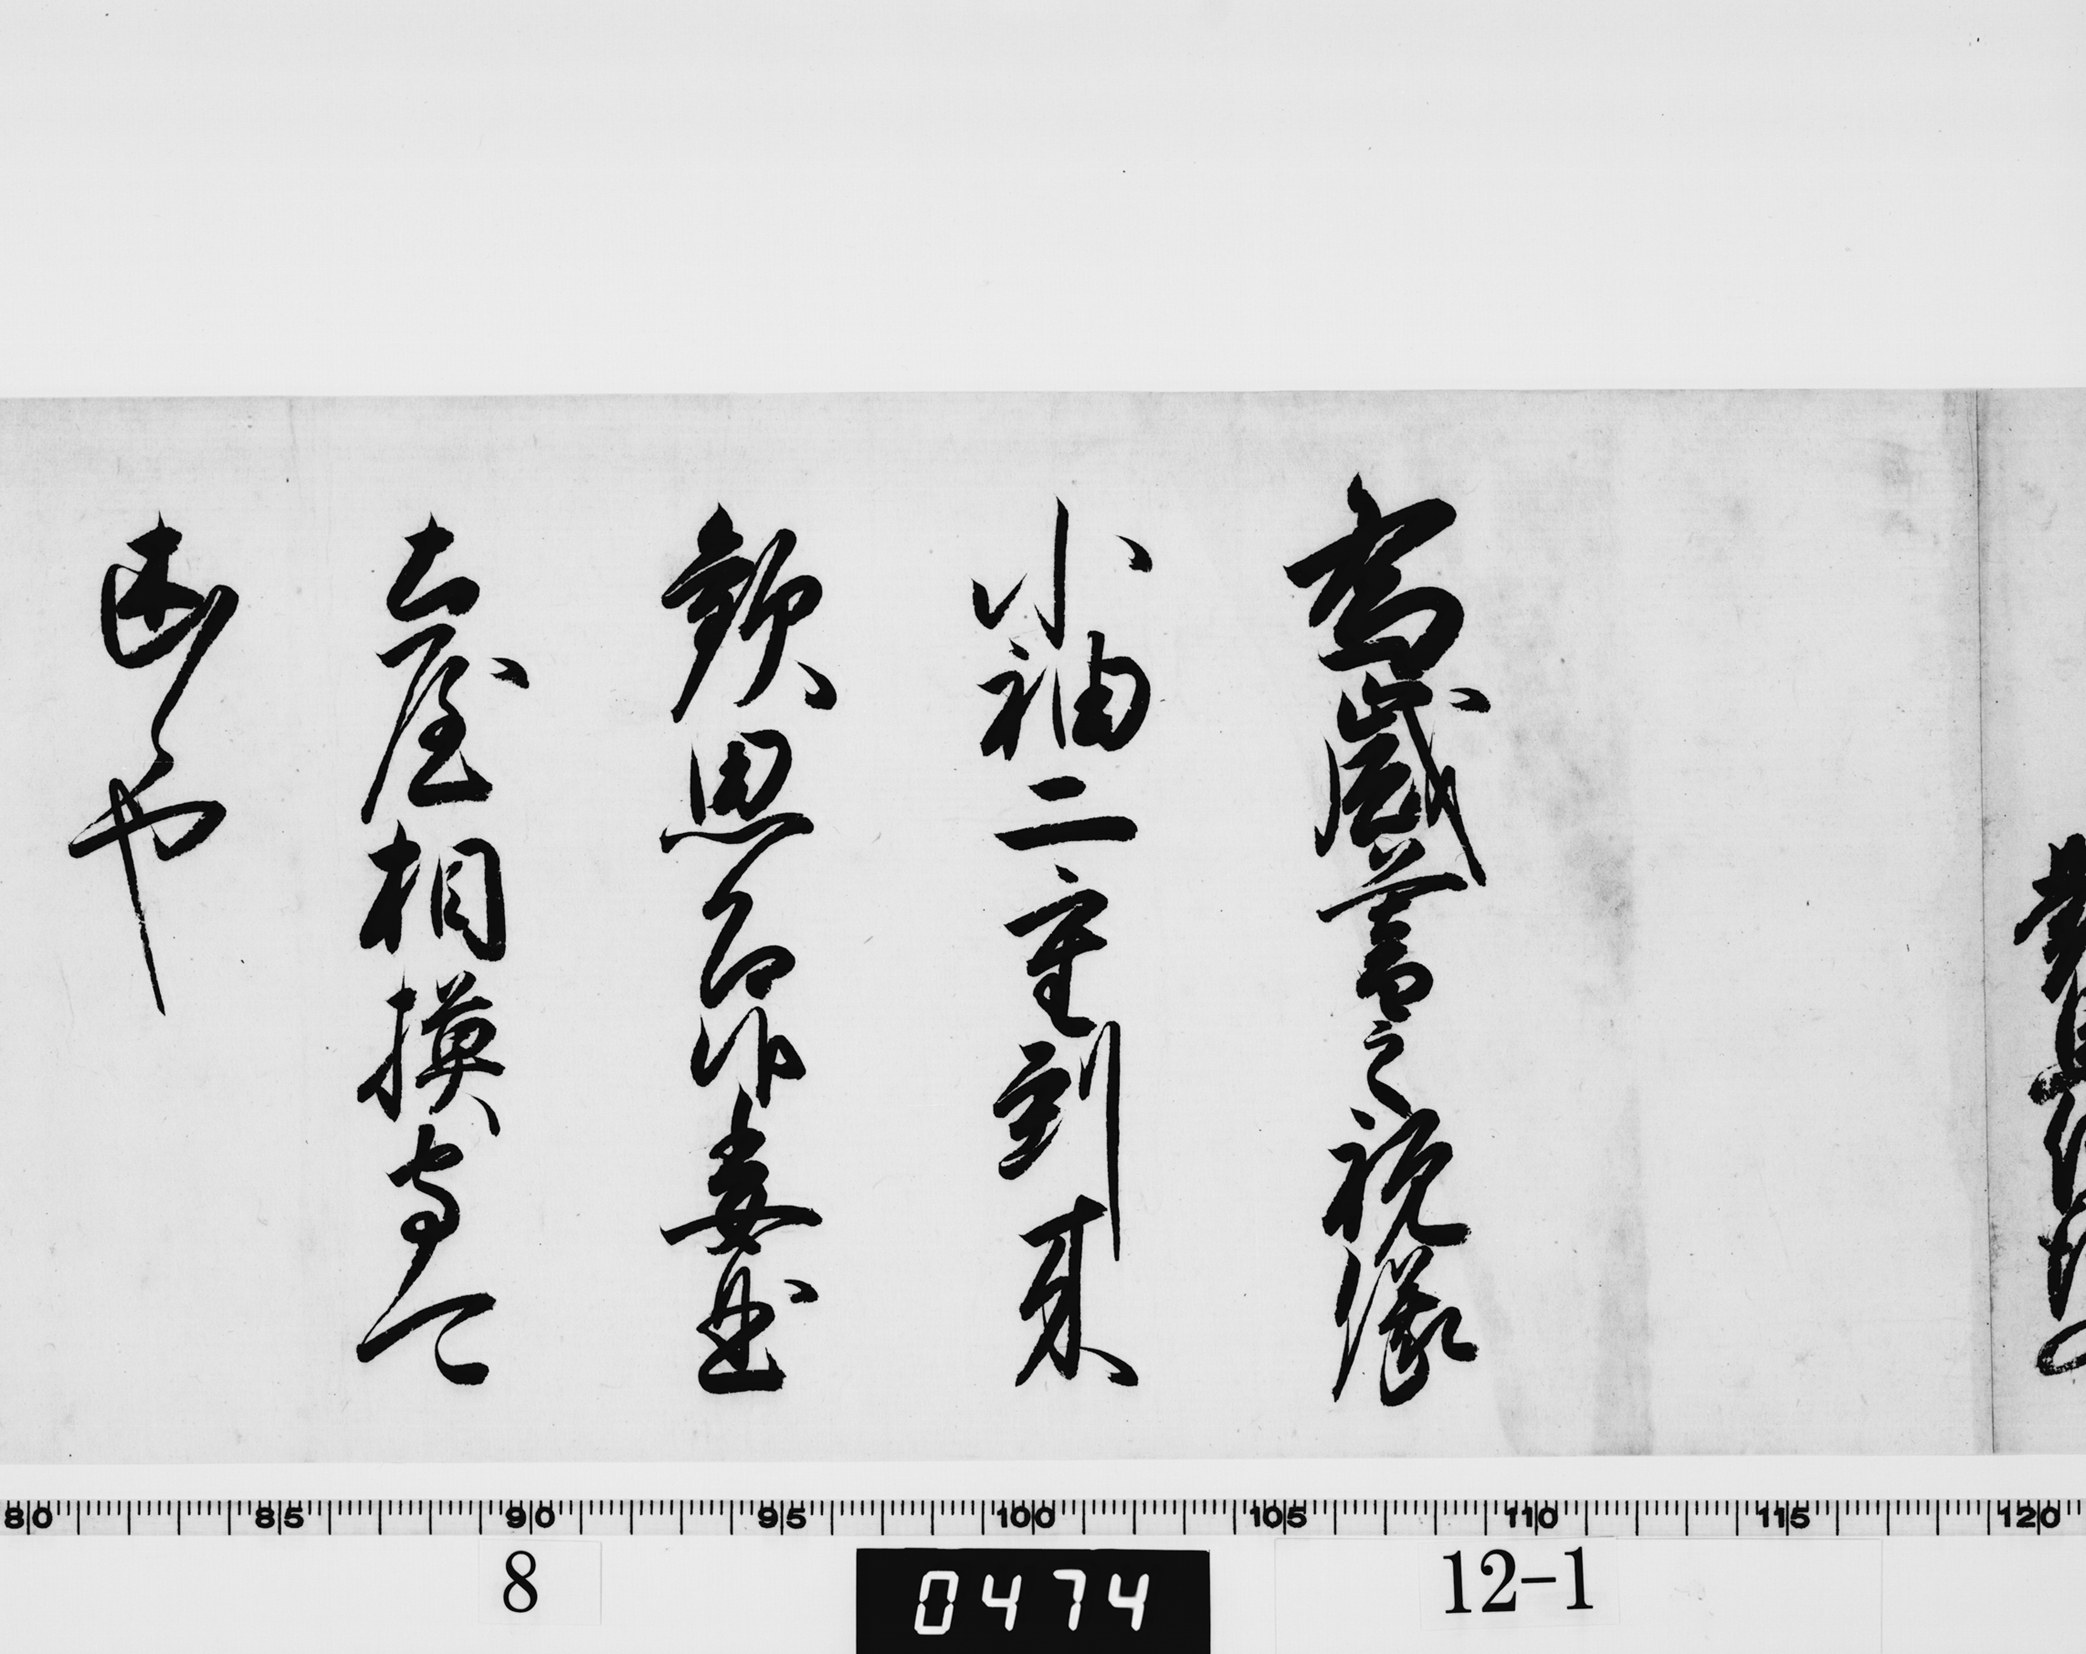 為歳暮之祝儀
小袖二重到来
歓思召候委曲
土屋相模守可
申候也
80 85 90 95 100 105 110 115 120
8 0474 12-1